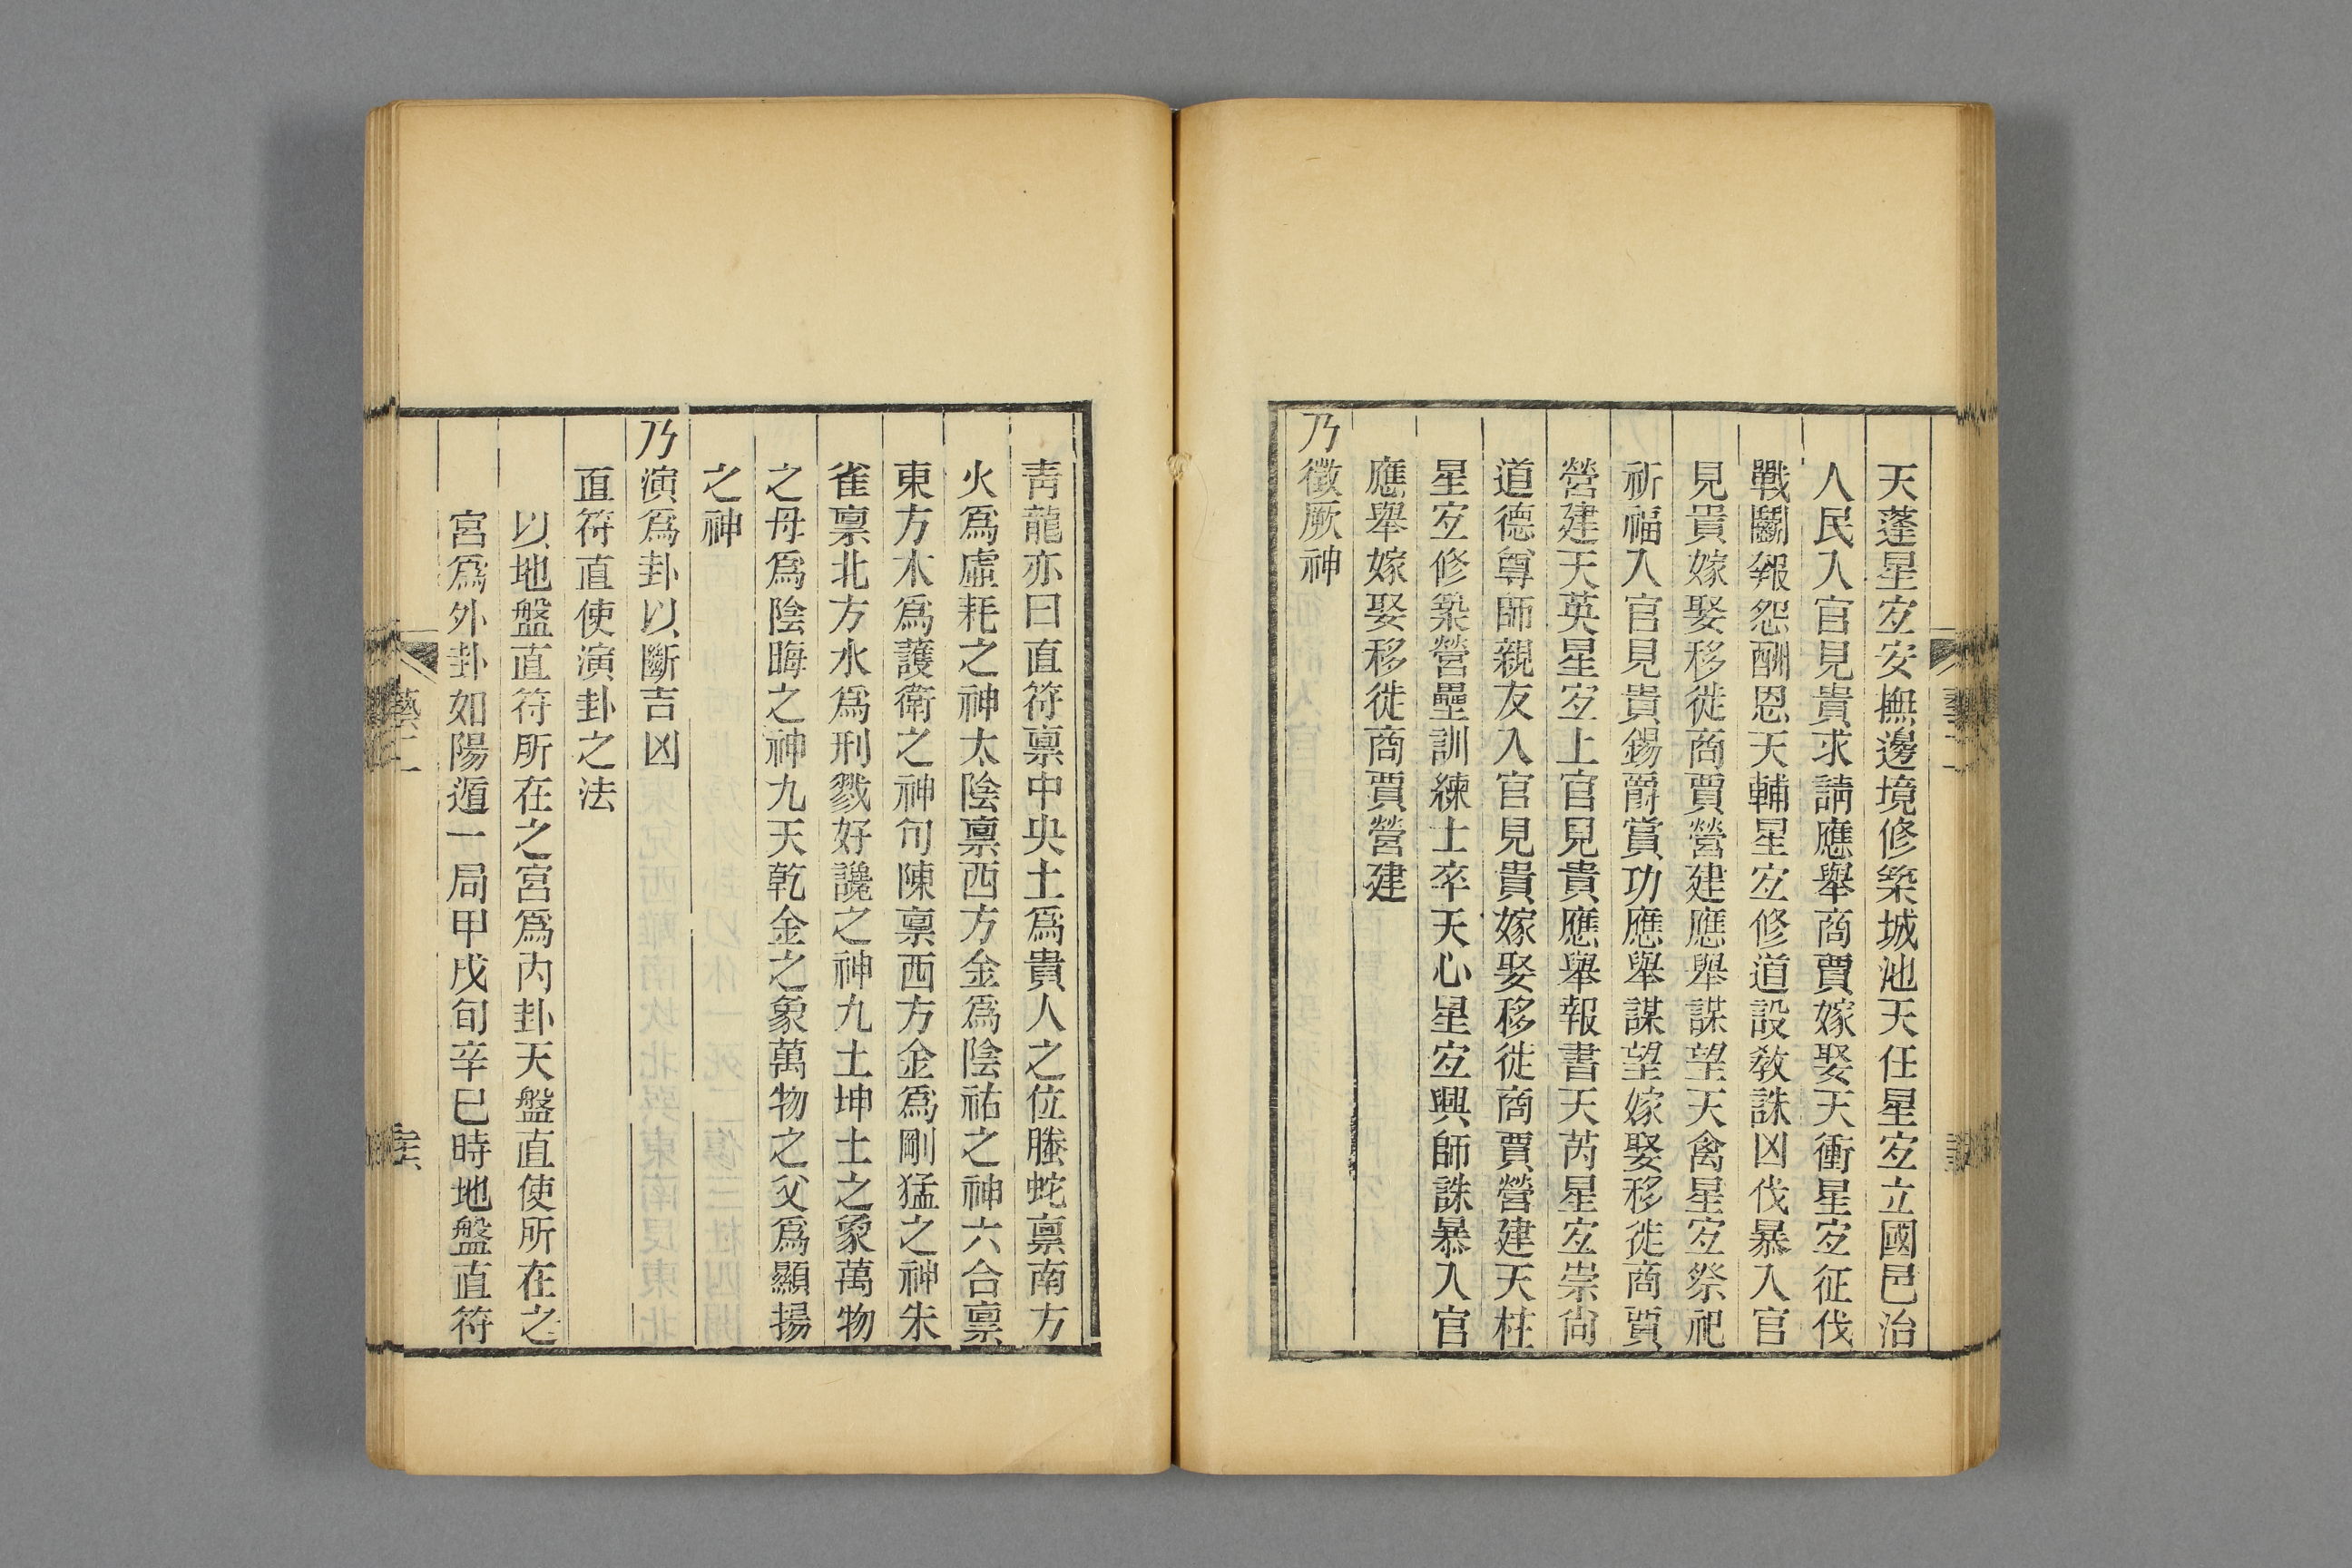 天蓬星宐安撫邊境修築城池天任星宐立國邑治
人民入官見貴求請應舉商賈嫁娶天衝星宐征伐
戰鬭報怨酬恩天輔星宐修道設敎誅凶伐暴入官
見貴嫁娶移徙商賈營建應舉謀望天禽星宐祭祀
祈福入官見貴錫爵賞功應舉謀望嫁娶移徙商賈
營建天英星宐上官見貴應舉報書天芮星宐崇尙
道德尊師親友入官見貴嫁娶移徙商賈營建天柱
星宐修築營壘訓練士卒天心星宐興師誅暴入官
應舉嫁娶移徙商賈營建
乃徵厥神
靑龍亦曰直符禀中央土爲貴人之位螣蛇禀南方
火爲虛耗之神太陰禀西方金爲陰祐之神六合禀
東方木爲護衛之神句陳禀西方金爲剛猛之神朱
雀禀北方水爲刑戮好讒之神九土坤土之象萬物
之母爲陰晦之神九天乾金之象萬物之父爲顯揚
之神
乃演爲卦以斷吉凶
直符直使演卦之法
以地盤直符所在之宮爲內卦天盤直使所在之
宮爲外卦如陽遁一局甲戌旬辛巳時地盤直符
藝二